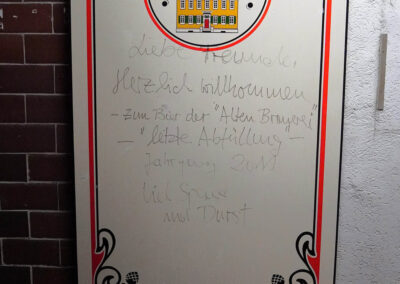 Liebe Freunde,
Herzlich willkommen
- zum Bier der "Alten Brauerei"
- "letzte Abfüllung" -
Jahrgang 2011
Viel Spass
und Durst